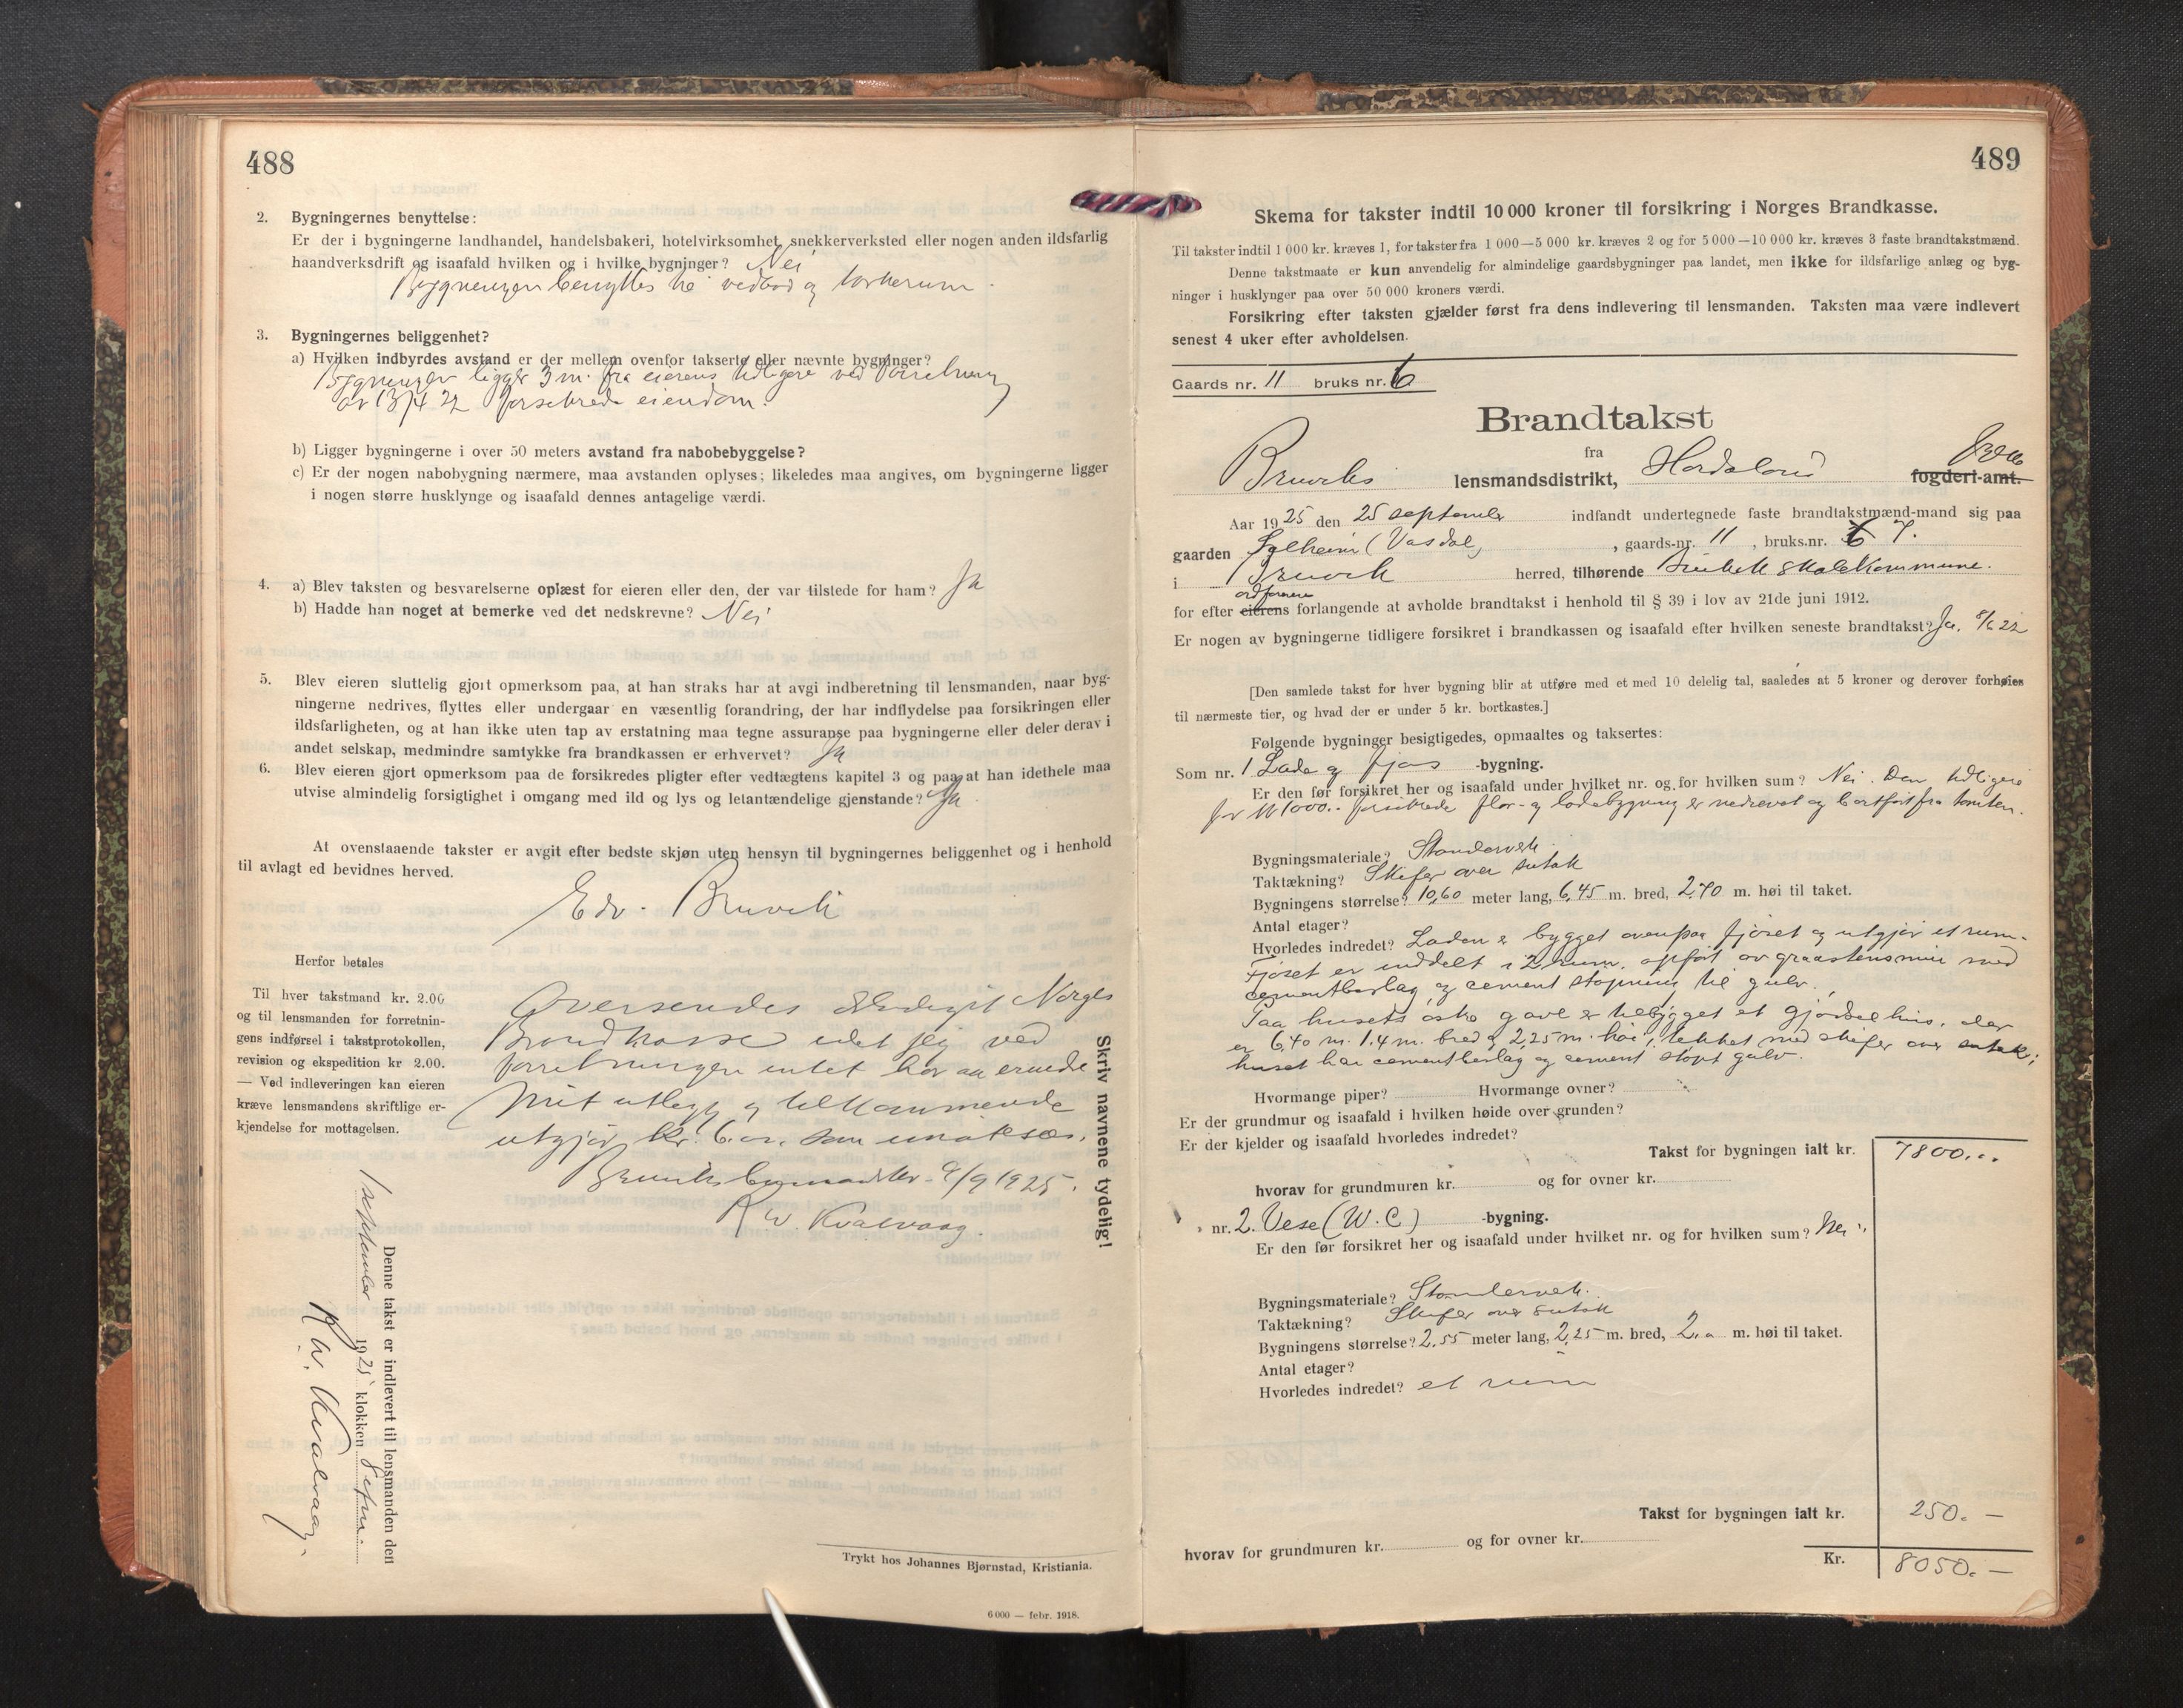 488
2. Bygningernes benyttelse:
Er der i bygningerne landhandel, handelsbakeri, hotelvirksomhet, snekkerverksted eller nogen anden ildsfarlig
haandverksdrift og isaafald hvilken og i hvilke bygninger? Nei
Bygningen benyttes til vedbod og torkerum.
3. Bygningernes beliggenhet?
a) Hvilken indbyrdes avstand er der mellem ovenfor takserte eller nævnte bygninger?
Bygningen ligger 3 m. fra eierens tidligere ved forretning
av 13/4 22 forsikrede eiendom.
b) Ligger bygningerne i over 50 meters avstand fra nabobebyggelse?
c) Er der nogen nabobygning nærmere, maa avstanden oplyses; likeledes maa angives, om bygningerne ligger
i nogen større husklynge og isaafald dennes antagelige værdi.
4. a) Blev taksten og besvarelserne oplæst for eieren eller den, der var tilstede for ham? Ja
b) Hadde han noget at bemerke ved det nedskrevne? Nei
5. Blev eieren sluttelig gjort opmerksom paa, at han straks har at avgi indberetning til lensmanden, naar byg-
ningerne nedrives, flyttes eller undergaar en væsentlig forandring, der har indflydelse paa forsikringen eller
ildsfarligheten, og at han ikke uten tap av erstatning maa tegne assuranse paa bygningerne eller deler derav i
andet selskap, medmindre samtykke fra brandkassen er erhvervet? Ja
6. Blev eieren gjort opmerksom paa de forsikredes pligter efter vedtægtens kapitel 3 og paa at han idethele maa
utvise almindelig forsigtighet i omgang med ild og lys og letantændelige gjenstande? Ja
At ovenstaaende takster er avgit efter bedste skjøn uten hensyn til bygningernes beliggenhet og i henhold
til avlagt ed bevidnes herved.
Edv. Bruvik
Herfor betales
Til hver takstmand kr. 2.00
og til lensmanden for forretnin-
gens indførsel i takstprotokollen,
revision og ekspedition kr 2.00.
— Ved indleveringen kan eieren
kræve lensmandens skriftlige er-
kjendelse for mottagelsen.
Oversendes Norges
Brandkasse idet jeg ved
forretningen intet har at erindre
Mit utlegg og tilkommende
utgjør kr. 6.00, som
9/9 1925.
R W. Kvalvaag.
Skriv navnene tydelig!
Denne takst er indlevert til lensmanden den
september 1925 klokken 8 efm.
R W. Kvalvaag.
Trykt hos Johannes Bjørnstad, Kristiania.
6 000 — febr. 1918.
489
Skema for takster indtil 10 000 kroner til forsikring i Norges Brandkasse.
Til takster indtil 1 000 kr. kræves 1, for takster fra 1 000—5 000 kr. kræves 2 og for 5 000—10 000 kr. kræves 3 faste brandtakstmænd.
Denne takstmaate er kun anvendelig for almindelige gaardsbygninger paa landet, men ikke for ildsfarlige anlæg og byg-
ninger i husklynger paa over 50 000 kroners værdi.
Forsikring efter taksten gjælder først fra dens indlevering til lensmanden. Taksten maa være indlevert
senest 4 uker efter avholdelsen.
Gaards nr. 11 bruks nr. 6
Brandtakst
fra
Bruviks lensmandsdistrikt, Hordaland fylke fogderi-amt.
Aar 1925 den 25 september indfandt undertegnede faste brandtakstmænd-mand sig paa
gaarden Solheim (Vasdal) , gaards-nr. 11 , bruks.nr. 6 7.
i Bruvik herred, tilhørende Bruvik skolekommune.
ordførerens
for efter eierens forlangende at avholde brandtakst i henhold til § 39 i lov av 21de juni 1912.
Er nogen av bygningerne tidligere forsikret i brandkassen og isaafald efter hvilken seneste brandtakst? Ja. 8/6 22
[Den samlede takst for hver bygning blir at utføre med et med 10 delelig tal, saaledes at 5 kroner og derover forhøies
til nærmeste tier, og hvad der er under 5 kr. bortkastes.]
Følgende bygninger besigtigedes, opmaaltes og taksertes:
Som nr. 1 Lade og fjøs -bygning.
Er den før forsikret her og isaafald under hvilket nr. og for hvilken sum? Nei. Den tidligere
for kr 1000.- forsikrede flor- og ladebygning er nedrevet og bortført fra tomten.
Bygningsmateriale? Standerverk
Taktækning? Skifer over sutak
Bygningens størrelse? 10,60 meter lang, 6,45 m. bred, 2,70 m. høi til taket.
Antal etager?
Hvorledes indredet? Laden er bygget ovenpaa fjøset og utgjør et rum.
Fjøset er inddelt i 2 rum, opført av graastensmur med
cementbeslag og cement støpning til gulv.
Paa husets østre gavl er tilbygget et gjødselhus, der
er 6,40 m. l. 4 m. bred og 2,25 m. høi, tekket med skifer over sutak;
huset har cementbeslag og cement støpt gulv.
Hvormange piper? Hvormange ovner?
Er der grundmur og isaafald i hvilken høide over grunden?
Er der kjelder og isaafald hvorledes indredet?
Takst for bygningen ialt kr. 7800...
hvorav for grundmuren kr. og for ovner kr.
" nr. 2. Vese (W.C) -bygning.
Er den før forsikret her og isaafald under hvilket nr. og for hvilken sum? Nei
Bygningsmateriale? Standerverk.
Taktækning? Skifer over sutak
Bygningens størrelse? 2,55 meter lang, 2,25 m. bred, 2,00 m. høi til taket.
Antal etager?
Hvorledes indredet? et rum
Takst for bygningen ialt kr. 250.—
hvorav for grundmuren kr. og for ovner kr.
Kr. 8050.—